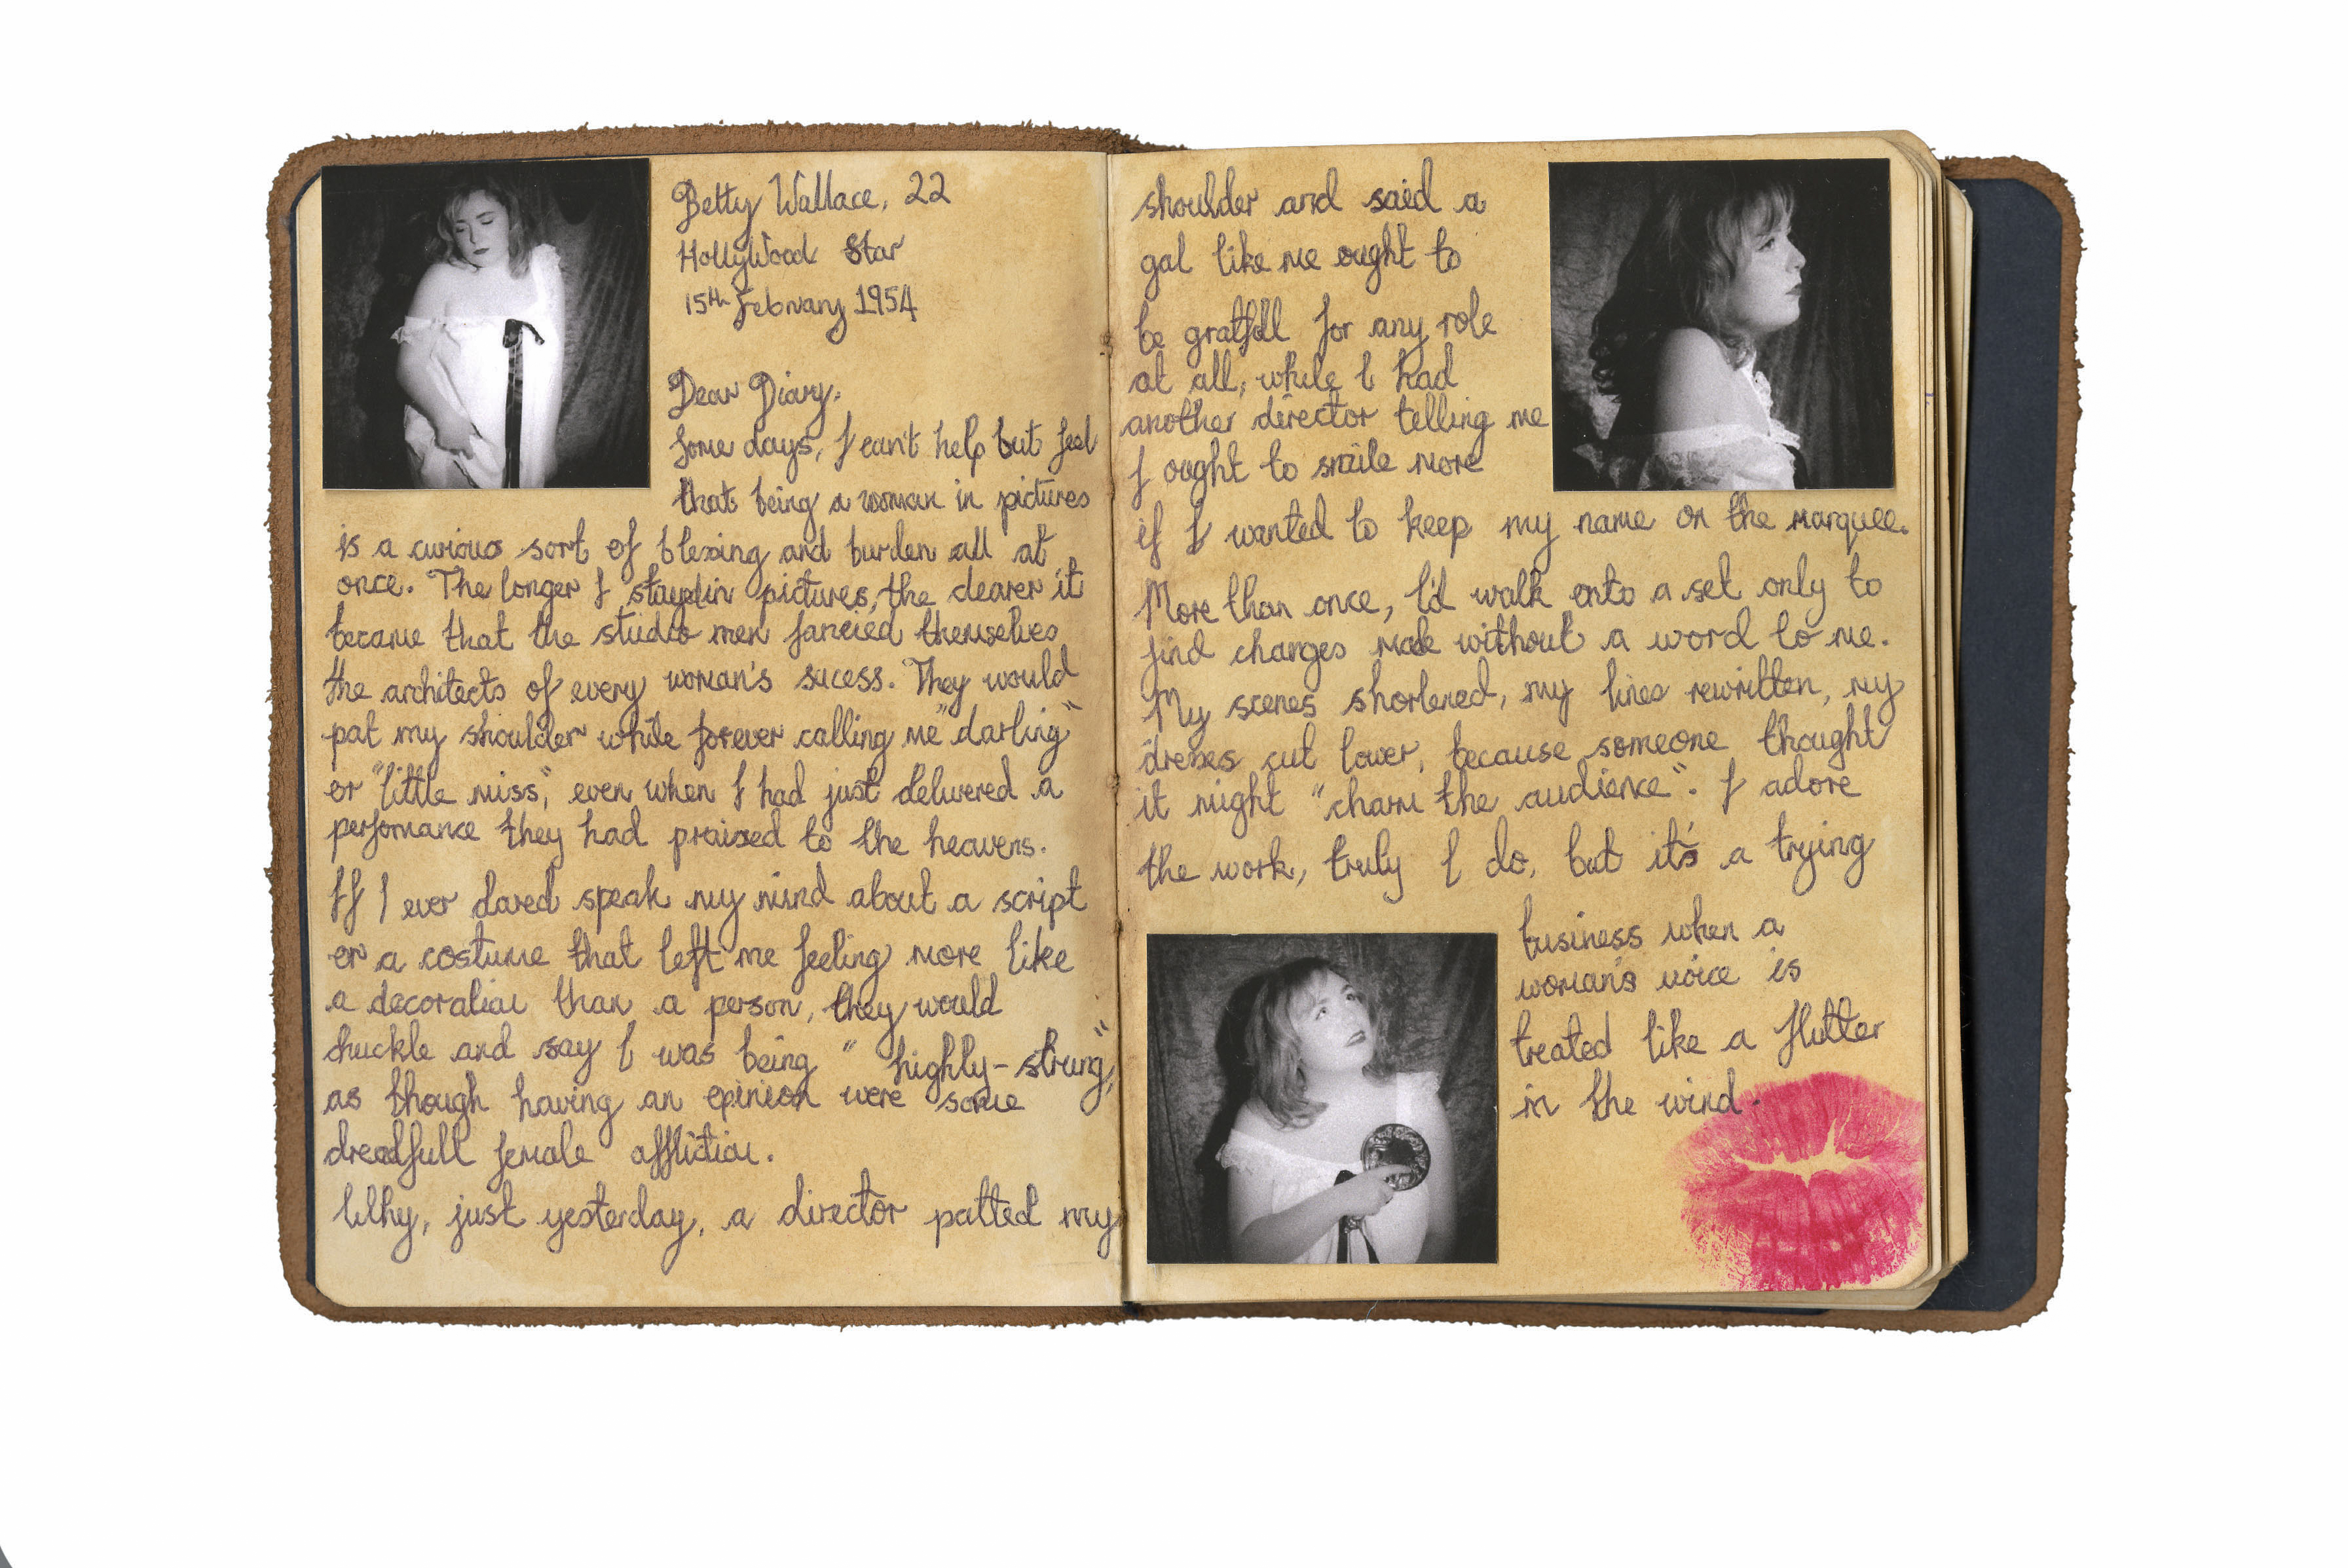 Betty Wallace, 22
Hollywood Star
15th February 1954
Dear Diary,
Some days, I can't help but feel
that being a woman in pictures
is a curious sort of blessing and burden all at
once. The longer I stayed in pictures, the clearer it
became that the studio men fancied themselves
the architects of every woman's sucess. They would
pat my shoulder while forever calling me "darling"
or "little miss", even when I had just delivered a
performance they had praised to the heavens.
If I ever dared speak my mind about a script
or a costume that left me feeling more like
a decoration than a person, they would
chuckle and say I was being "highly-strung",
as though having an opinion were some
dreadfull female affliction.
Why, just yesterday, a director patted my
shoulder and said a
gal like me ought to
be gratfull for any role
at all, while I had
another director telling me
I ought to smile more
if I wanted to keep my name on the marquee.
More than once, I'd walk onto a set only to
find changes made without a word to me.
My scenes shortened, my lines rewritten, my
dresses cut lower, because someone thought
it might "charm the audience". I adore
the work, truly I do, but it's a trying
business when a
woman's voice is
treated like a flutter
in the wind.